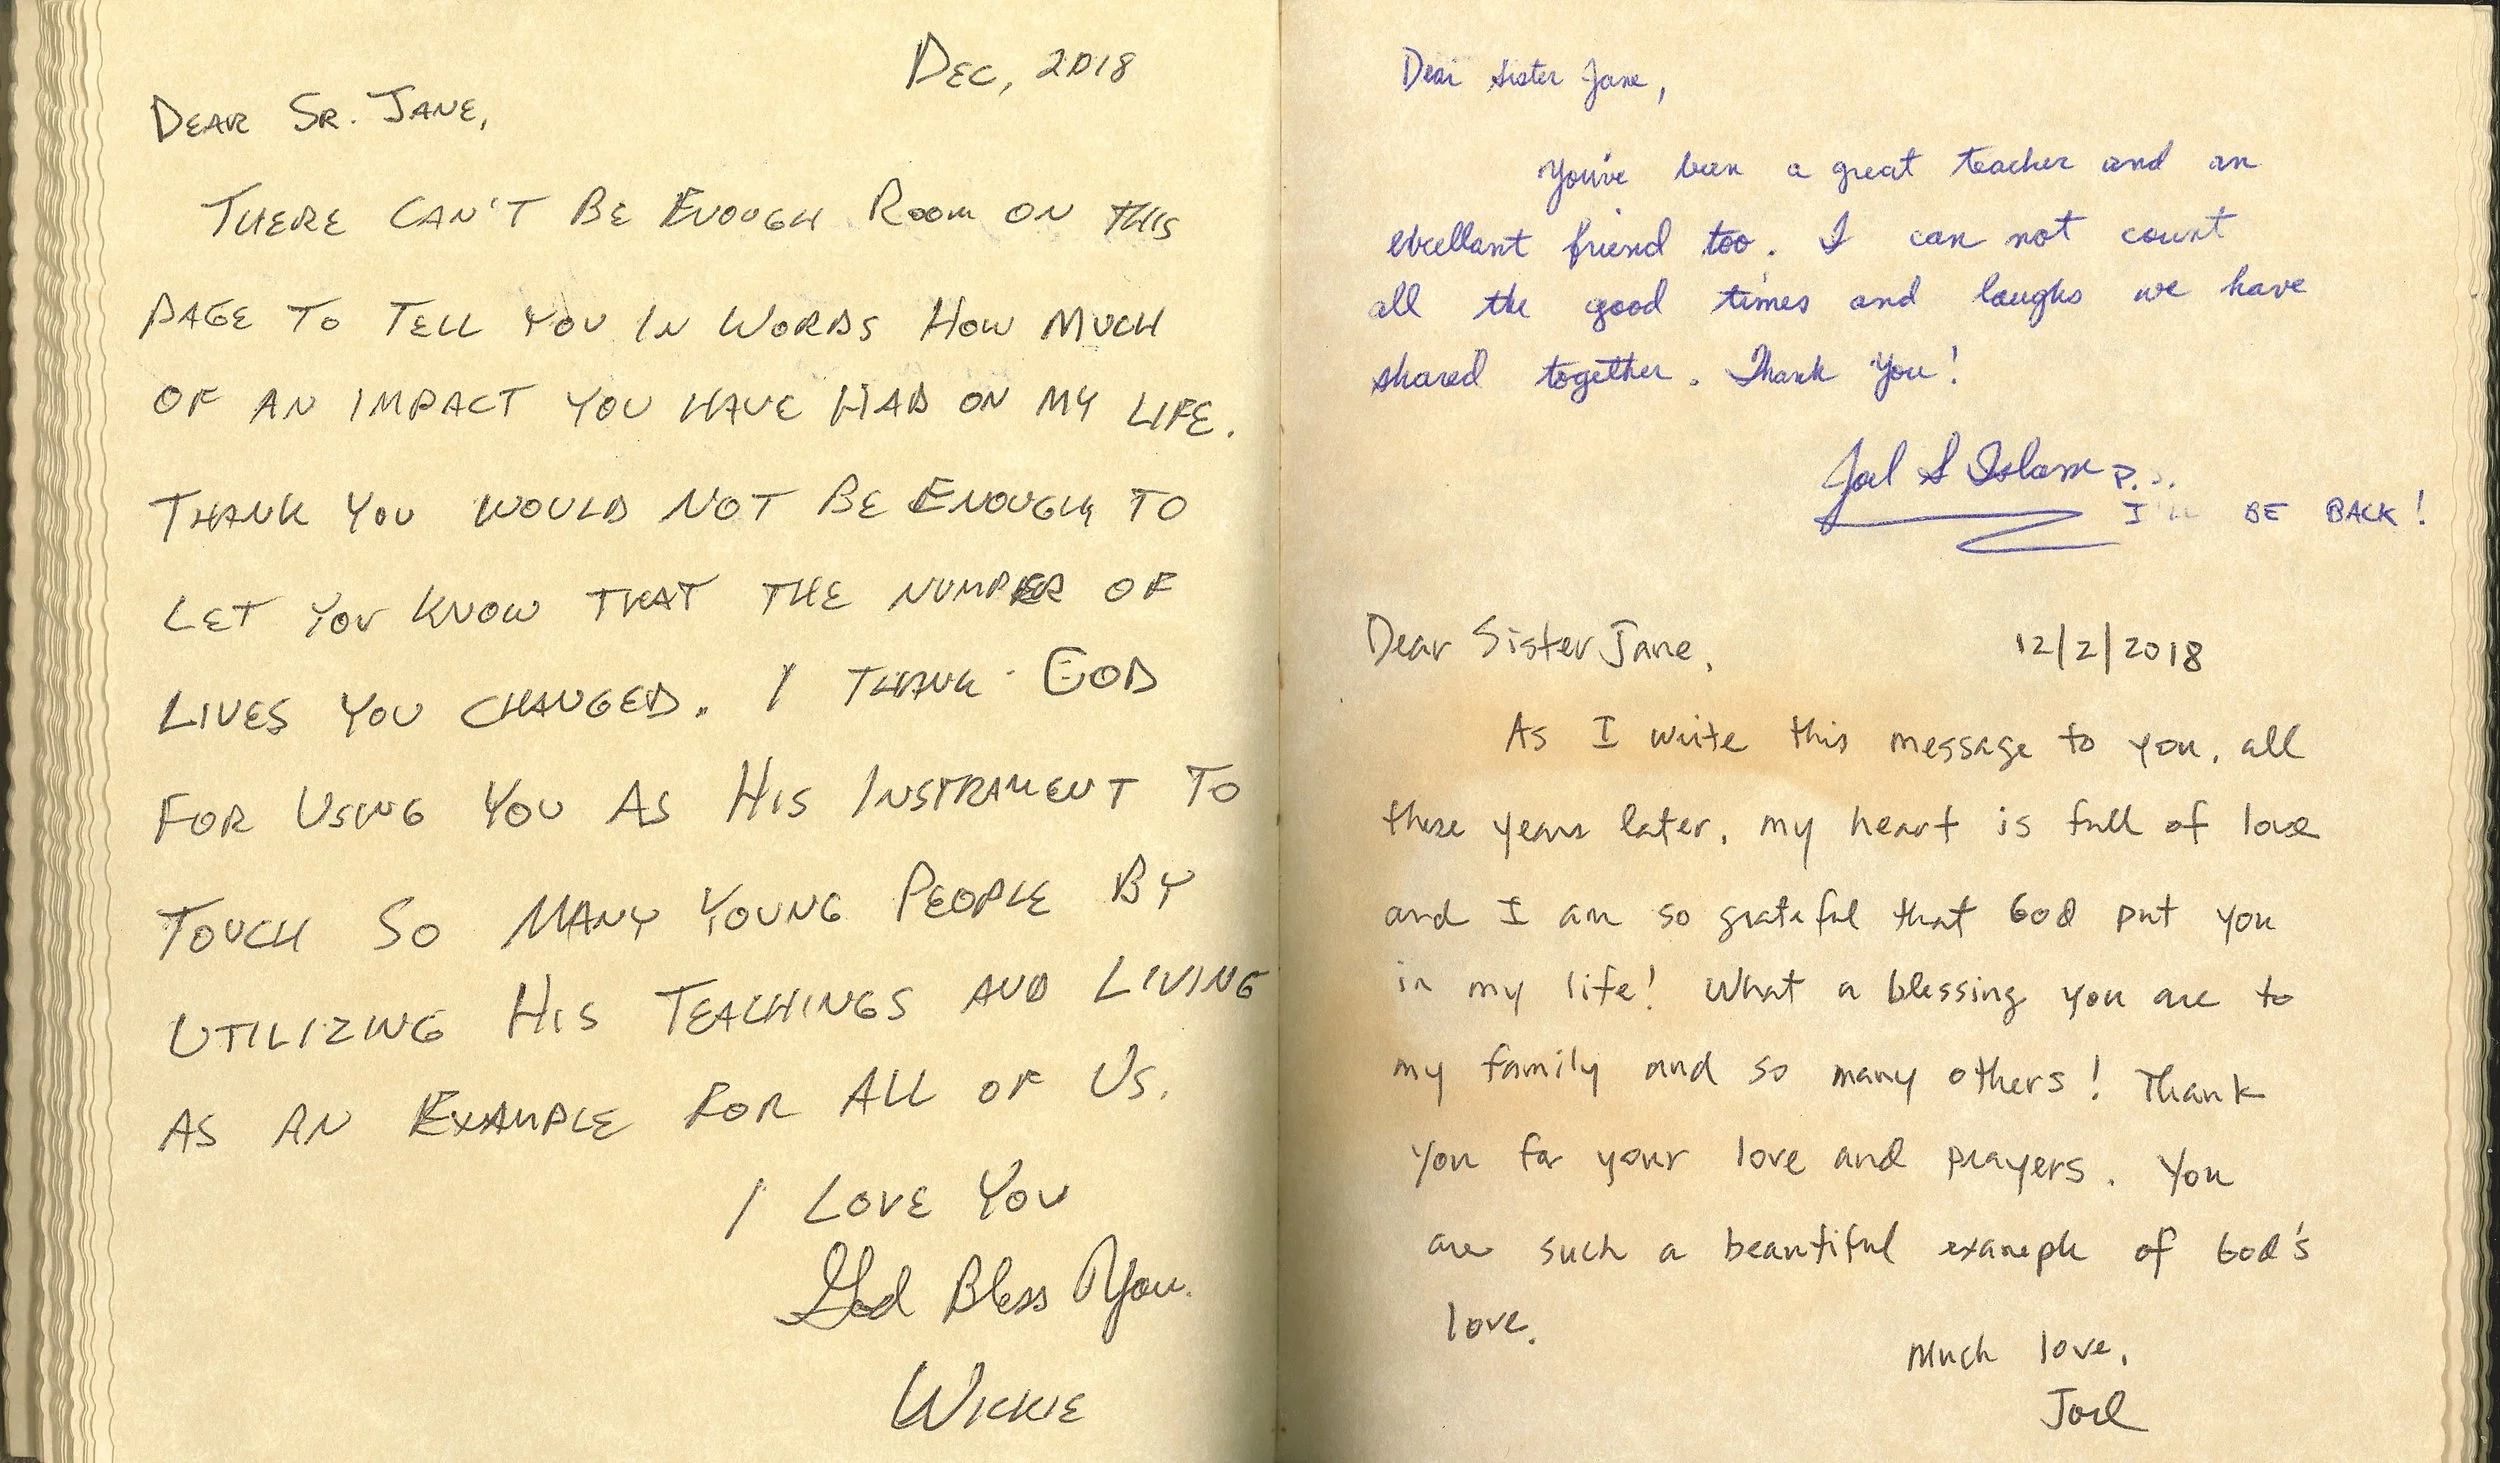 DEC, 2018
DEAR SR. JANE,
THERE CAN'T BE ENOUGH ROOM ON THIS
PAGE TO TELL YOU IN WORDS HOW MUCH
OF AN IMPACT YOU HAVE HAD ON MY LIFE.
THANK YOU WOULD NOT BE ENOUGH TO
LET YOU KNOW THAT THE NUMBER OF
LIVES YOU CHANGED. I THANK GOD
FOR USING YOU AS HIS INSTRAMENT TO
TOUCH SO MANY YOUNG PEOPLE BY
UTILIZING HIS TEACHINGS AND LIVING
AS AN EXAMPLE FOR ALL OF US.
I LOVE YOU
God Bless You.
WICKIE
Dear Sister Jane,
You've been a great teacher and an
excellant friend too. I can not count
all the good times and laughs we have
shared together. Thank You!
Joel S Islam P.S.
I'll BE BACK!
Dear Sister Jane, 12/2/2018
As I write this message to you, all
these years later, my heart is full of love
and I am so grateful that God put you
in my life! What a blessing you are to
my family and so many others! Thank
you for your love and prayers. You
are such a beautiful example of God's
love.
Much love,
Joel